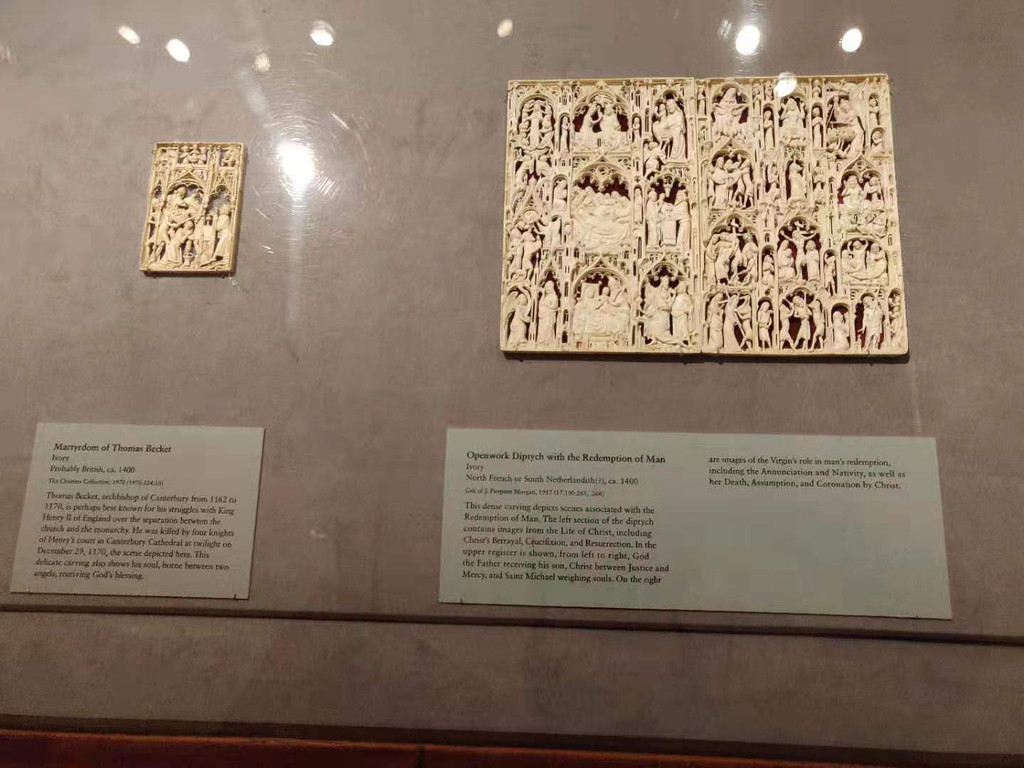 Martyrdom of Thomas Becket
Ivory
Probably British, ca. 1400
The Cloisters Collection, 1970 (1970.324.10)
Thomas Becket, archbishop of Canterbury from 1162 to
1170, is perhaps best known for his struggles with King
Henry II of England over the separation between the
church and the monarchy. He was killed by four knights
of Henry's court in Canterbury Cathedral at twilight on
December 29, 1170, the scene depicted here. This
delicate carving also shows his soul, borne between two
angels, receiving God's blessing.
Openwork Diptych with the Redemption of Man
Ivory
North French or South Netherlandish(?), ca. 1400
Gift of J. Pierpont Morgan, 1917 (17.190.263, .266)
This dense carving depicts scenes associated with the
Redemption of Man. The left section of the diptych
contains images from the Life of Christ, including
Christ's Betrayal, Crucifixion, and Resurrection. In the
upper register is shown, from left to right, God
the Father receiving his son, Christ between Justice and
Mercy, and Saint Michael weighing souls. On the right
are images of the Virgin's role in man's redemption,
including the Annunciation and Nativity, as well as
her Death, Assumption, and Coronation by Christ.